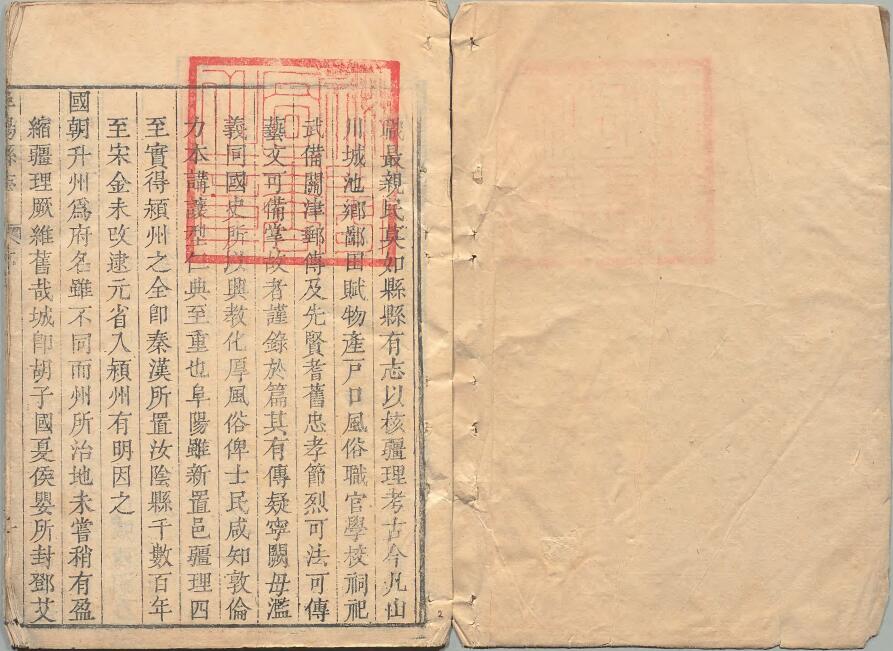 職最親民莫如縣縣有志以核疆理考古今凡山
川城池鄉鄙田賦物產戶口風俗職官學校祠祀
武備關津郵傳及先賢耆舊忠孝節烈可法可傳
藝文可備掌故者謹錄於篇其有傳疑寧闕毋濫
義同國史所以興教化厚風俗俾士民咸知敦倫
力本講讓型仁典至重也阜陽雖新置邑疆理四
至實得潁州之全卽秦漢所置汝陰縣千數百年
至宋金未攺逮元省入潁州有明因之
國朝升州爲府名雖不同而州所治地未嘗稍有盈
縮疆理厥維舊哉城卽胡子國夏侯嬰所封鄧艾
陽縣
2